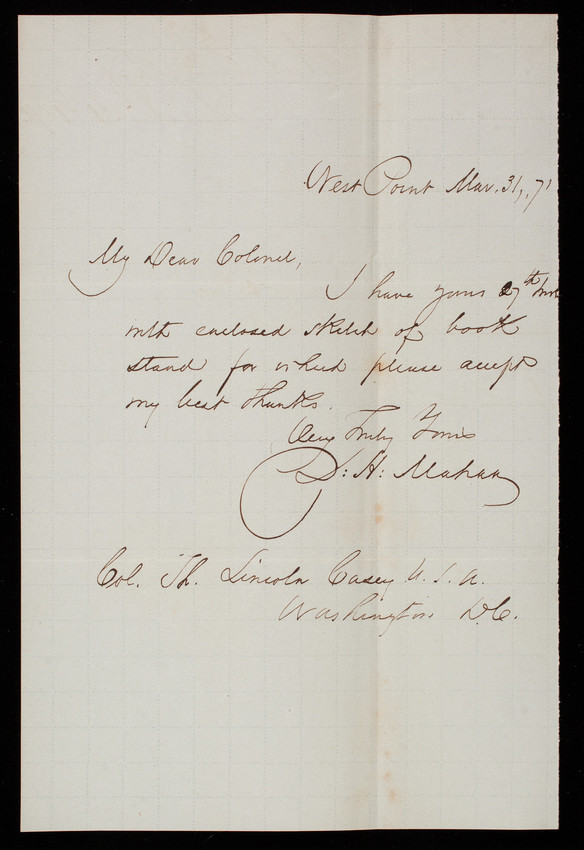 West Point Mar. 31, 71
My Dear Colonel,
I have yours 27th inst
with enclosed sketch of book
stand for which please accept
my best thanks.
Very Truly Yours
D: H: Mahan
Col. Th. Lincoln Casey U. S. A.
Washington D.C.